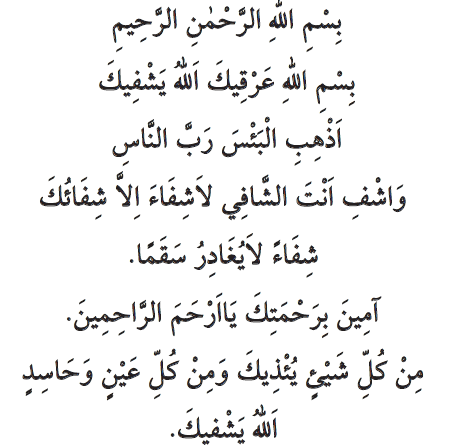 بِسْمِ اللهِ الرَّحْمٰنِ الرَّحِيمِ
بِسْمِ اللهِ عَرْقِيكَ اَللهُ يَشْفِيكَ
اَذْهِبِ الْبَئْسَ رَبَّ النَّاسِ
وَاشْفِ اَنْتَ الشَّافِي لاَشِفَاءَ اِلاَّ شِفَائُكَ
شِفَاءً لاَيُغَادِرُ سَقَمًا.
آمِينَ بِرَحْمَتِكَ يَااَرْحَمَ الرَّاحِمِينَ.
مِنْ كُلِّ شَيْئٍ يُئْذِيكَ وَمِنْ كُلِّ عَيْنٍ وَحَاسِدٍ
اَللهُ يَشْفِيكَ.